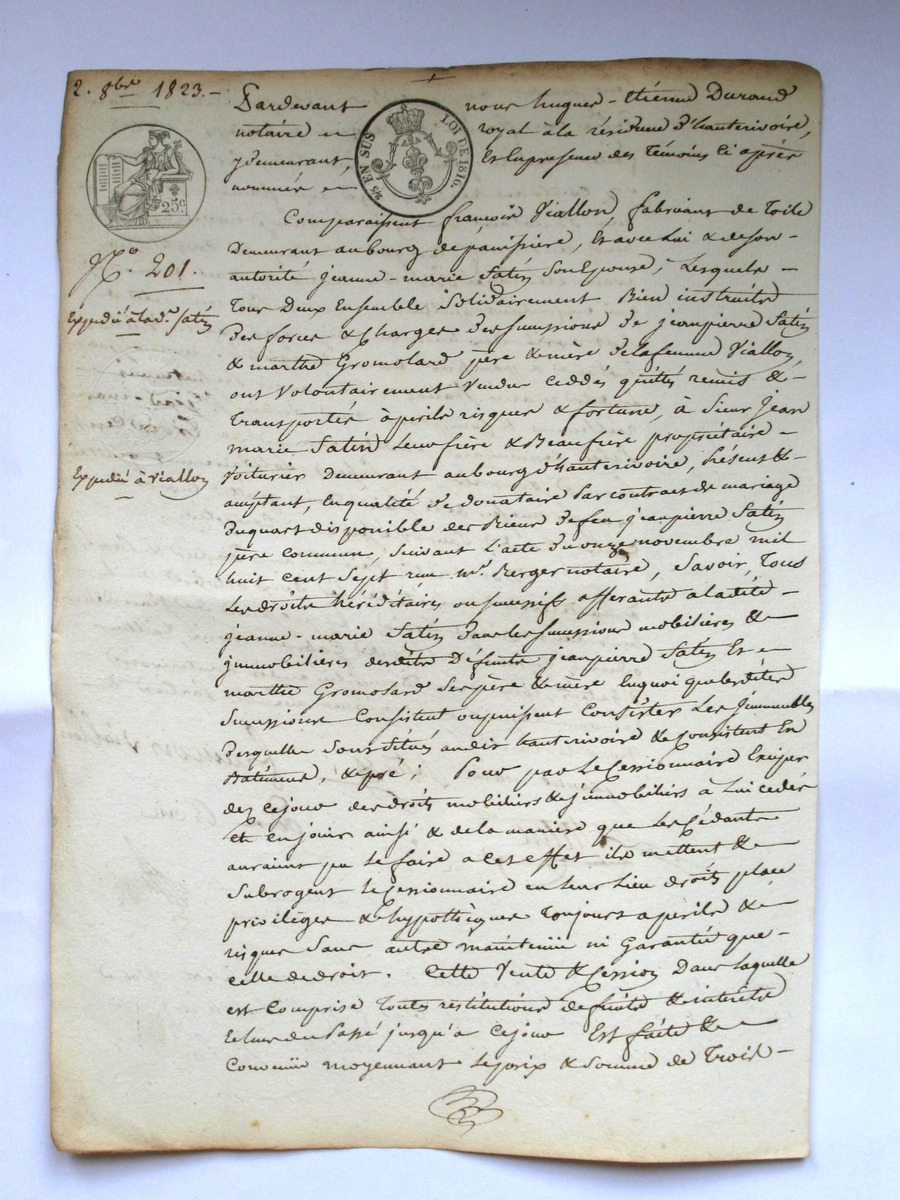 2. 8bre 1823.
Pardevant nous hugues-étienne Durand
notaire royal à la résidence d'hauterivoire,
y demeurant et en presence des témoins ci après
nommés
EN SUS LOI DE 1816.
25c
Comparaissent françois Viallon, fabricant de toile
Demeurant au bourg de panissiere, et avec lui & de son
autorité jeanne-marie Satin son Epouse, Lesquels
N.o 201.
Tous Deux Ensemble Solidairement Bien instruits
Expedié à la de. Satin
Des forces & Charges des successions de jeanpierre Satin
& marthe Gromolard père & mère de la femme Viallon,
ont Volontairement Vendu ceddés quittés remis &
transportés à perils risques & fortune, à Sieur Jean
marie Satin Leur frère & Beaufrère propriétaire
Voiturier demeurant au bourg d'hauterivoire, présent &
Expedié à Viallon
acceptant, en qualité de donataire par contract de mariage
Du quart disponible des Biens de feu jeanpierre Satin
père commun, suivant l'acte du onze novembre mil
huit cent sept reçu me. Berger notaire, Savoir, Tous
Les droits héréditaires ou successifs afferants a ladite
jeanne-marie Satin dans les successions mobilières &
jmmobilières desdits Défunts jeanpierre Satin Et
marthe Gromolard ses père & mère En quoi que lesdites
Successions Consistent ou puissent Consister Les jmmeubles
Desquelles sont situés audit hauterivoire & consistent En
Batiment, & pré; Pour par le Cessionnaire Exciper
des cejour des droits mobiliers & jmmobiliers à Lui cedés
et en jouir ainsi & de la maniere que Les Cédants
auraient pu le faire a cet effet ils mettent &
Subrogent le Cessionnaire en leur Lieu droits place
privilèges & hypothèques toujours a perils &
risques Sans autre maintenue ni Garantie que
celle de droit. Cette Vente & Cession Dans laquelle
est Comprise toutes restitutions de fruits & intérêts
du Passé jusqu'a cejour Est faite &
Convenue moyennant le prix & Somme de Trois